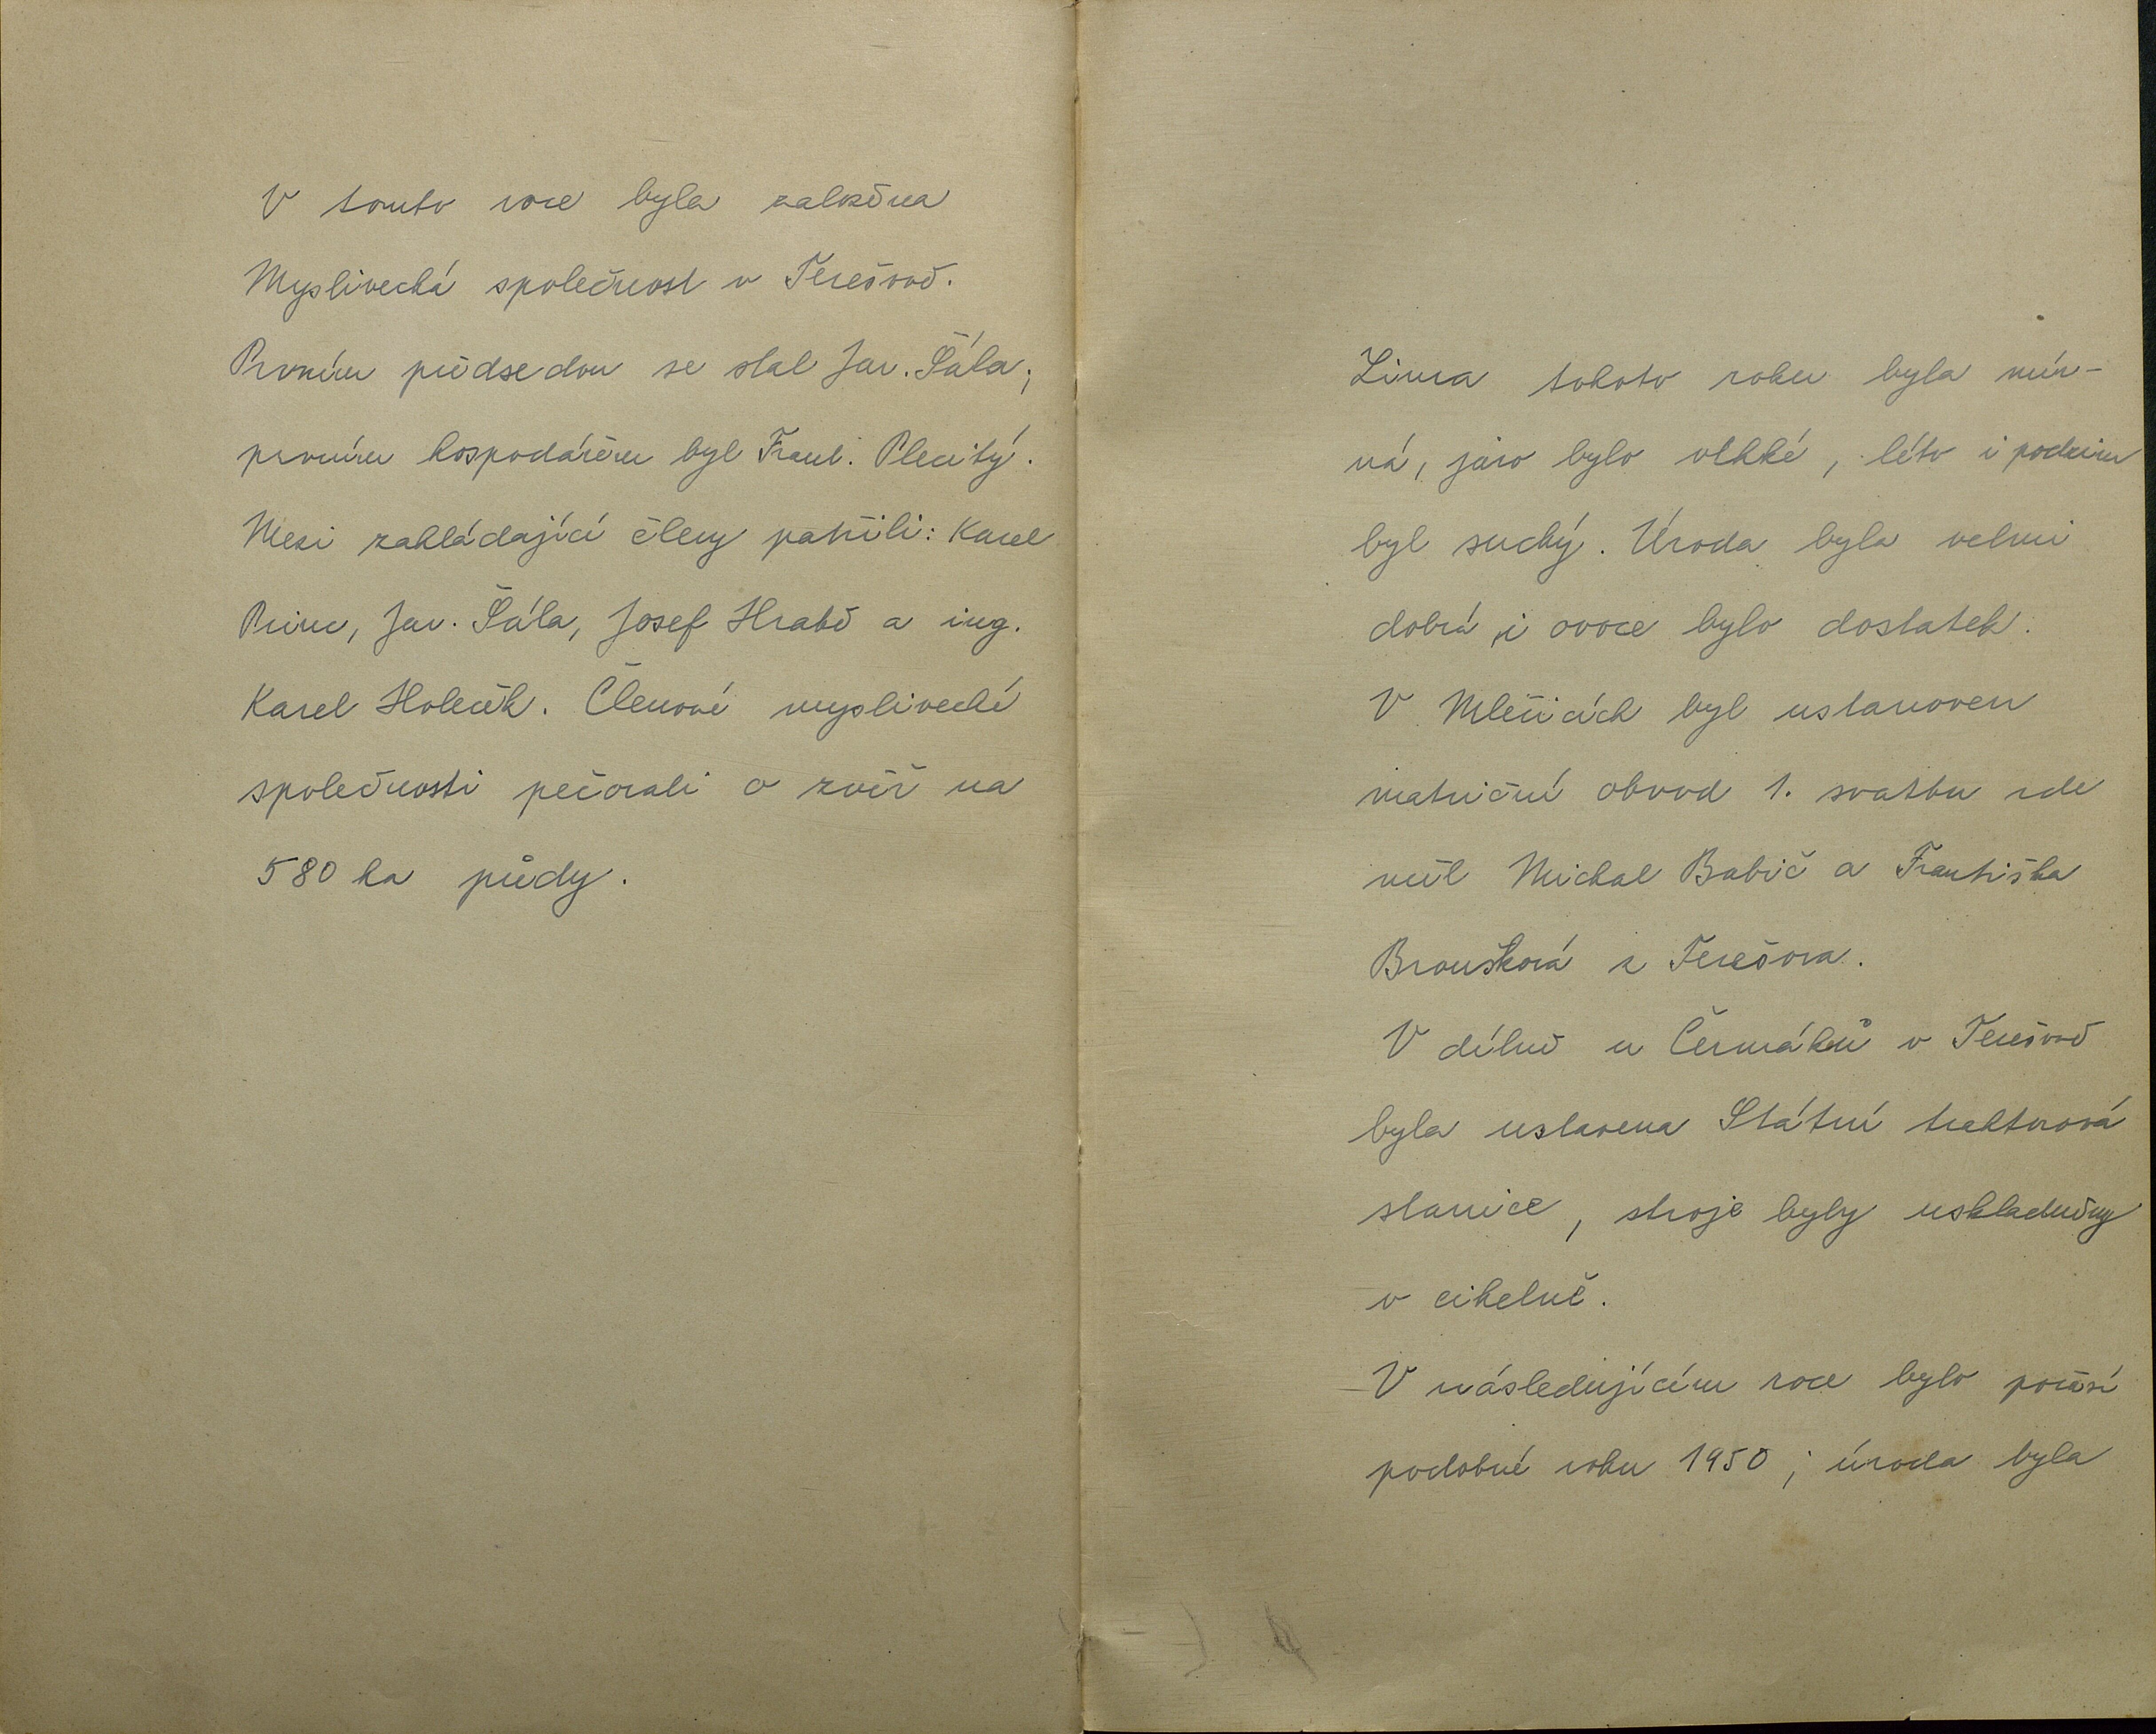 V tomto roce byla založena
Myslivecká společnost v Terešově.
Prvním předsedou se stal Jar. Šála;
prvním hospodářem byl Frant. Plecitý.
Mezi zakládající členy patřili: Karel
Princ, Jar. Šála, Josef Hrabě a ing.
Karel Holeček. Členové myslivecké
společnosti pečovali o zvěř na
580 ha půdy.
Zima tohoto roku byla mír-
ná, jaro bylo vlhké, léto i podzim
byl suchý. Úroda byla velmi
dobrá, i ovoce bylo dostatek.
V Mlečicích byl ustanoven
matriční obvod 1. svatbu zde
měl Michal Babič a Františka
Broušková z Terešova.
V dílně u Čermáků v Terešově
byla ustavena Státní traktorová
stanice, stroje byly uskladněny
v cihelně.
V následujícím roce bylo počasí
podobné roku 1950; úroda byla